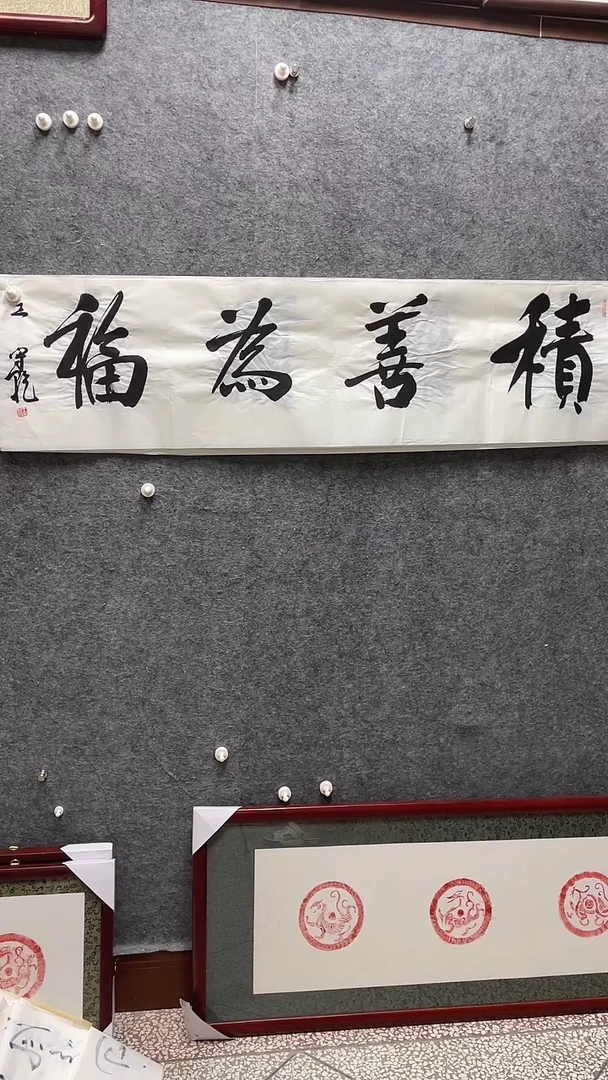 積善為福